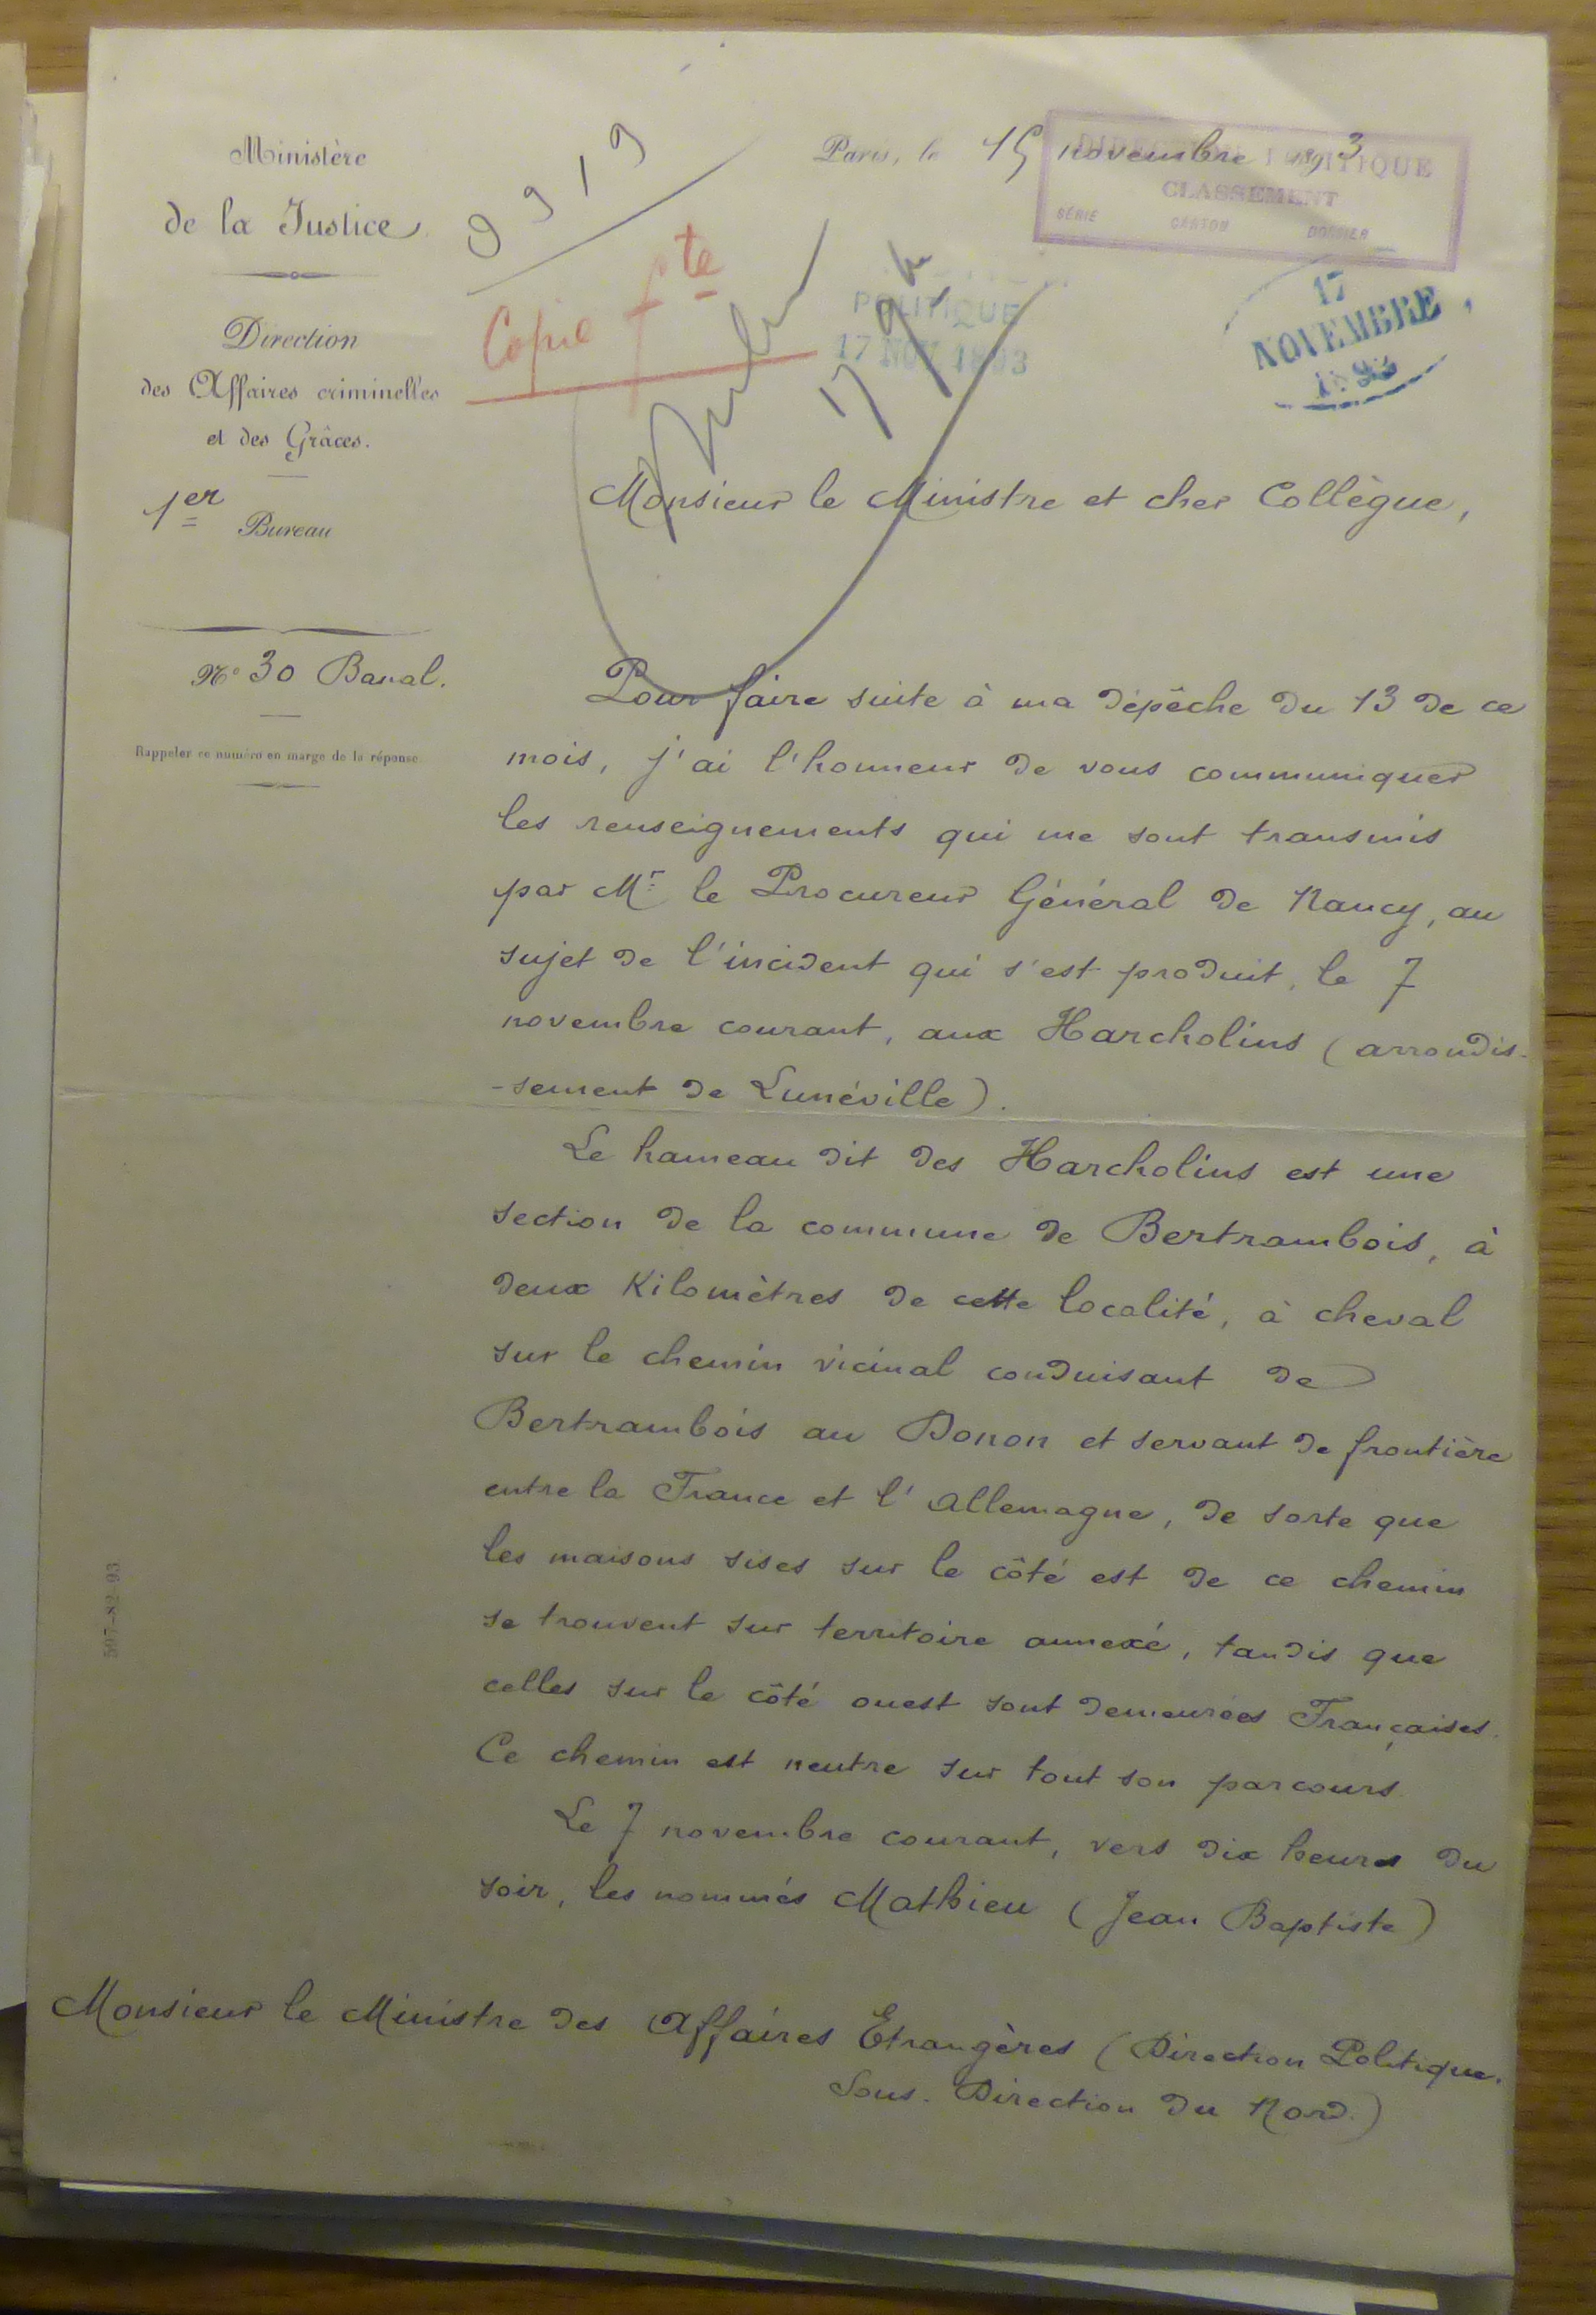 Ministère
de la Justice
Direction
des Affaires criminelles
et des Grâces.
1er Bureau
N° 30 Banal.
Rappeler ce numéro en marge de la réponse
9919
Copie
Paris, le 15 novembre 1893
DIRECTION POLITIQUE
CLASSEMENT
SÉRIE CARTON DOSSIER
POLITIQUE
17 NOV 1893
17
NOVEMBRE
1893
Monsieur le Ministre et cher Collègue,
Pour faire suite à ma dépêche du 13 de ce
mois, j'ai l'honneur de vous communiquer
les renseignements qui me sont transmis
par Mr le Procureur Général de Nancy, au
sujet de l'incident qui s'est produit, le 7
novembre courant, aux Harcholins (arrondis-
-sement de Lunéville).
Le hameau dit des Harcholins est une
section de la commune de Bertrambois, à
deux Kilomètres de cette localité, à cheval
sur le chemin vicinal conduisant de
Bertrambois au Donon et servant de frontière
entre la France et l'Allemagne, de sorte que
les maisons sises sur le côté est de ce chemin
se trouvent sur territoire annexé, tandis que
celles sur le côté ouest sont demeurées Françaises.
Ce chemin est neutre sur tout son parcours
Le 7 novembre courant, vers dix heures du
soir, les nommés Mathieu (Jean Baptiste)
Monsieur le Ministre des Affaires Etrangères (Direction Politique.
Sous-Direction du Nord.)
507-82-93